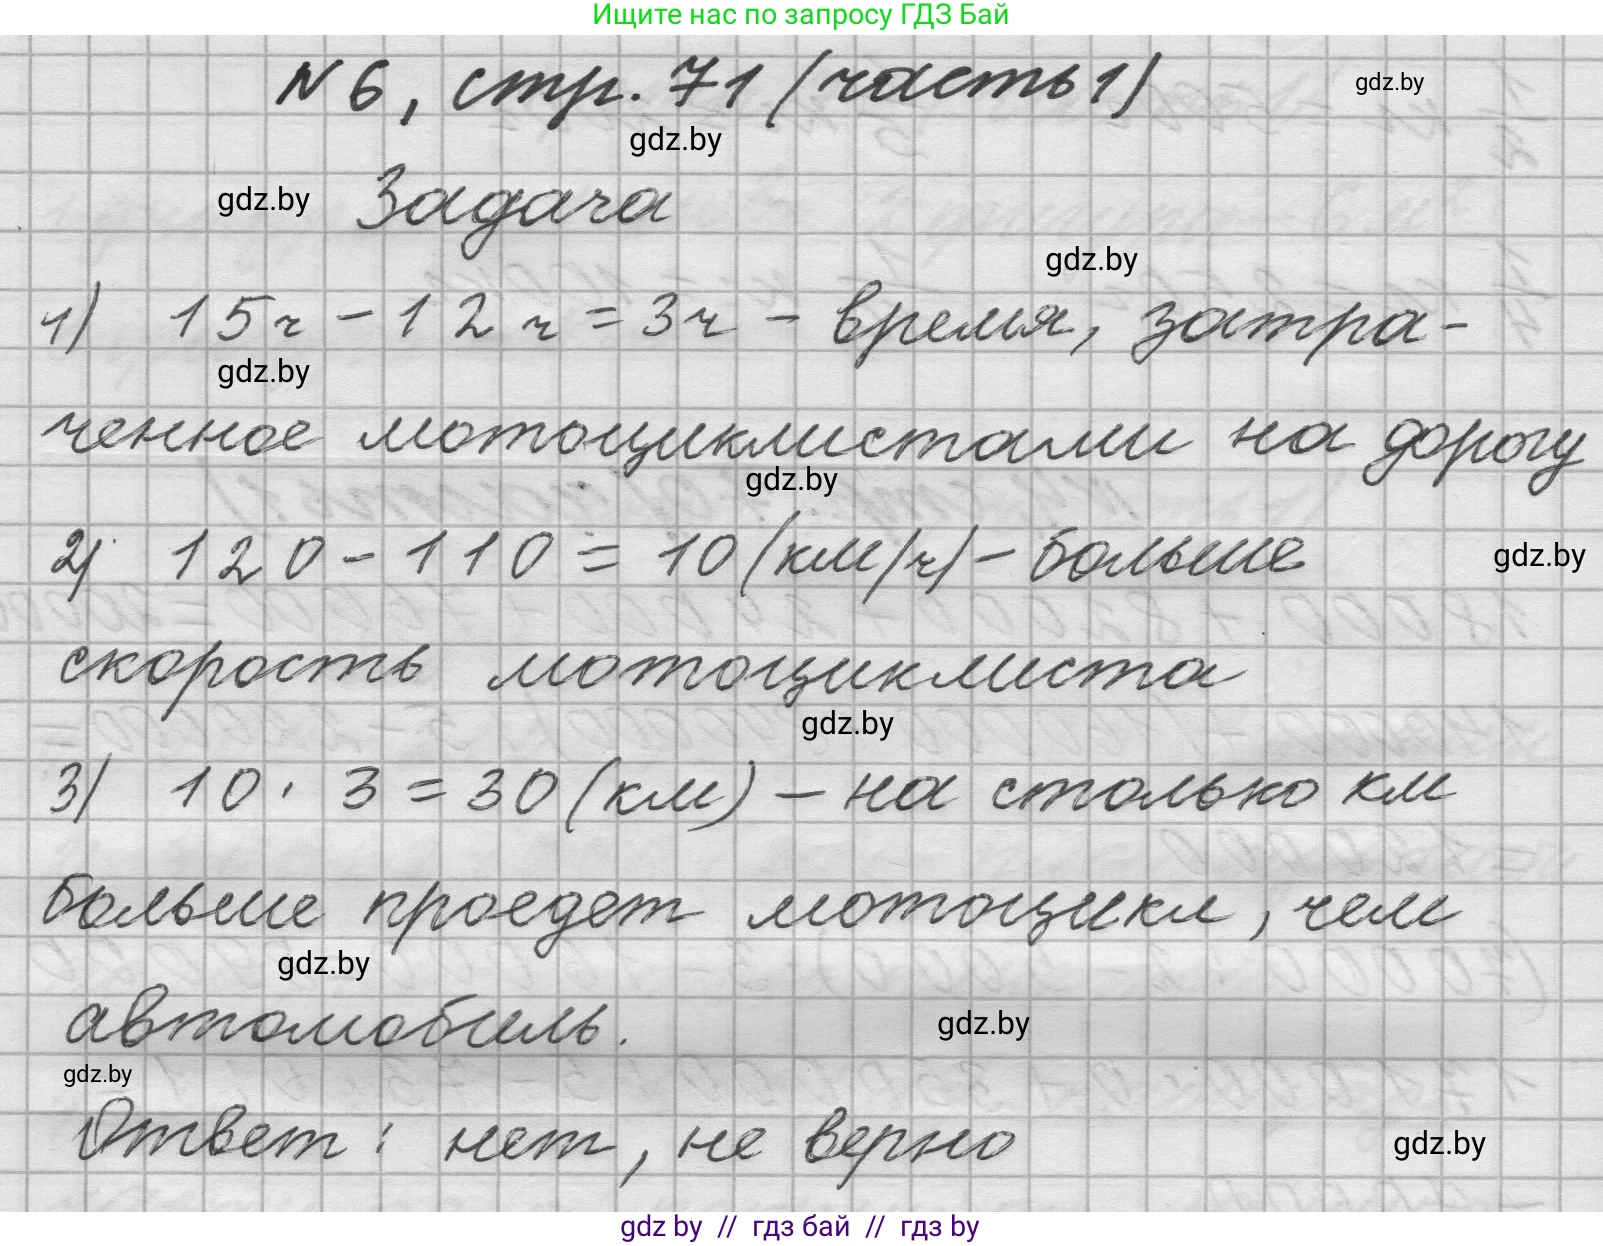 Ищите нас по запросу ГДЗ Бай
N 6, стр. 71 (часть 1)
gdz.by
gdz.by
gdz.by Задача
gdz.by
1) 15ч - 12ч = 3ч - время, затра-
gdz.by
ченное мотоциклистами на дорогу
gdz.by
2) 120 - 110 = 10 (км/ч) - больше
gdz.by
скорость мотоциклиста
gdz.by
3) 10 · 3 = 30 (км) - на столько км
больше проедет мотоцикл, чем
gdz.by
автомобиль.
gdz.by
gdz.by
Ответ: нет, не верно
gdz.by
gdz by // гдз бай // гдз by